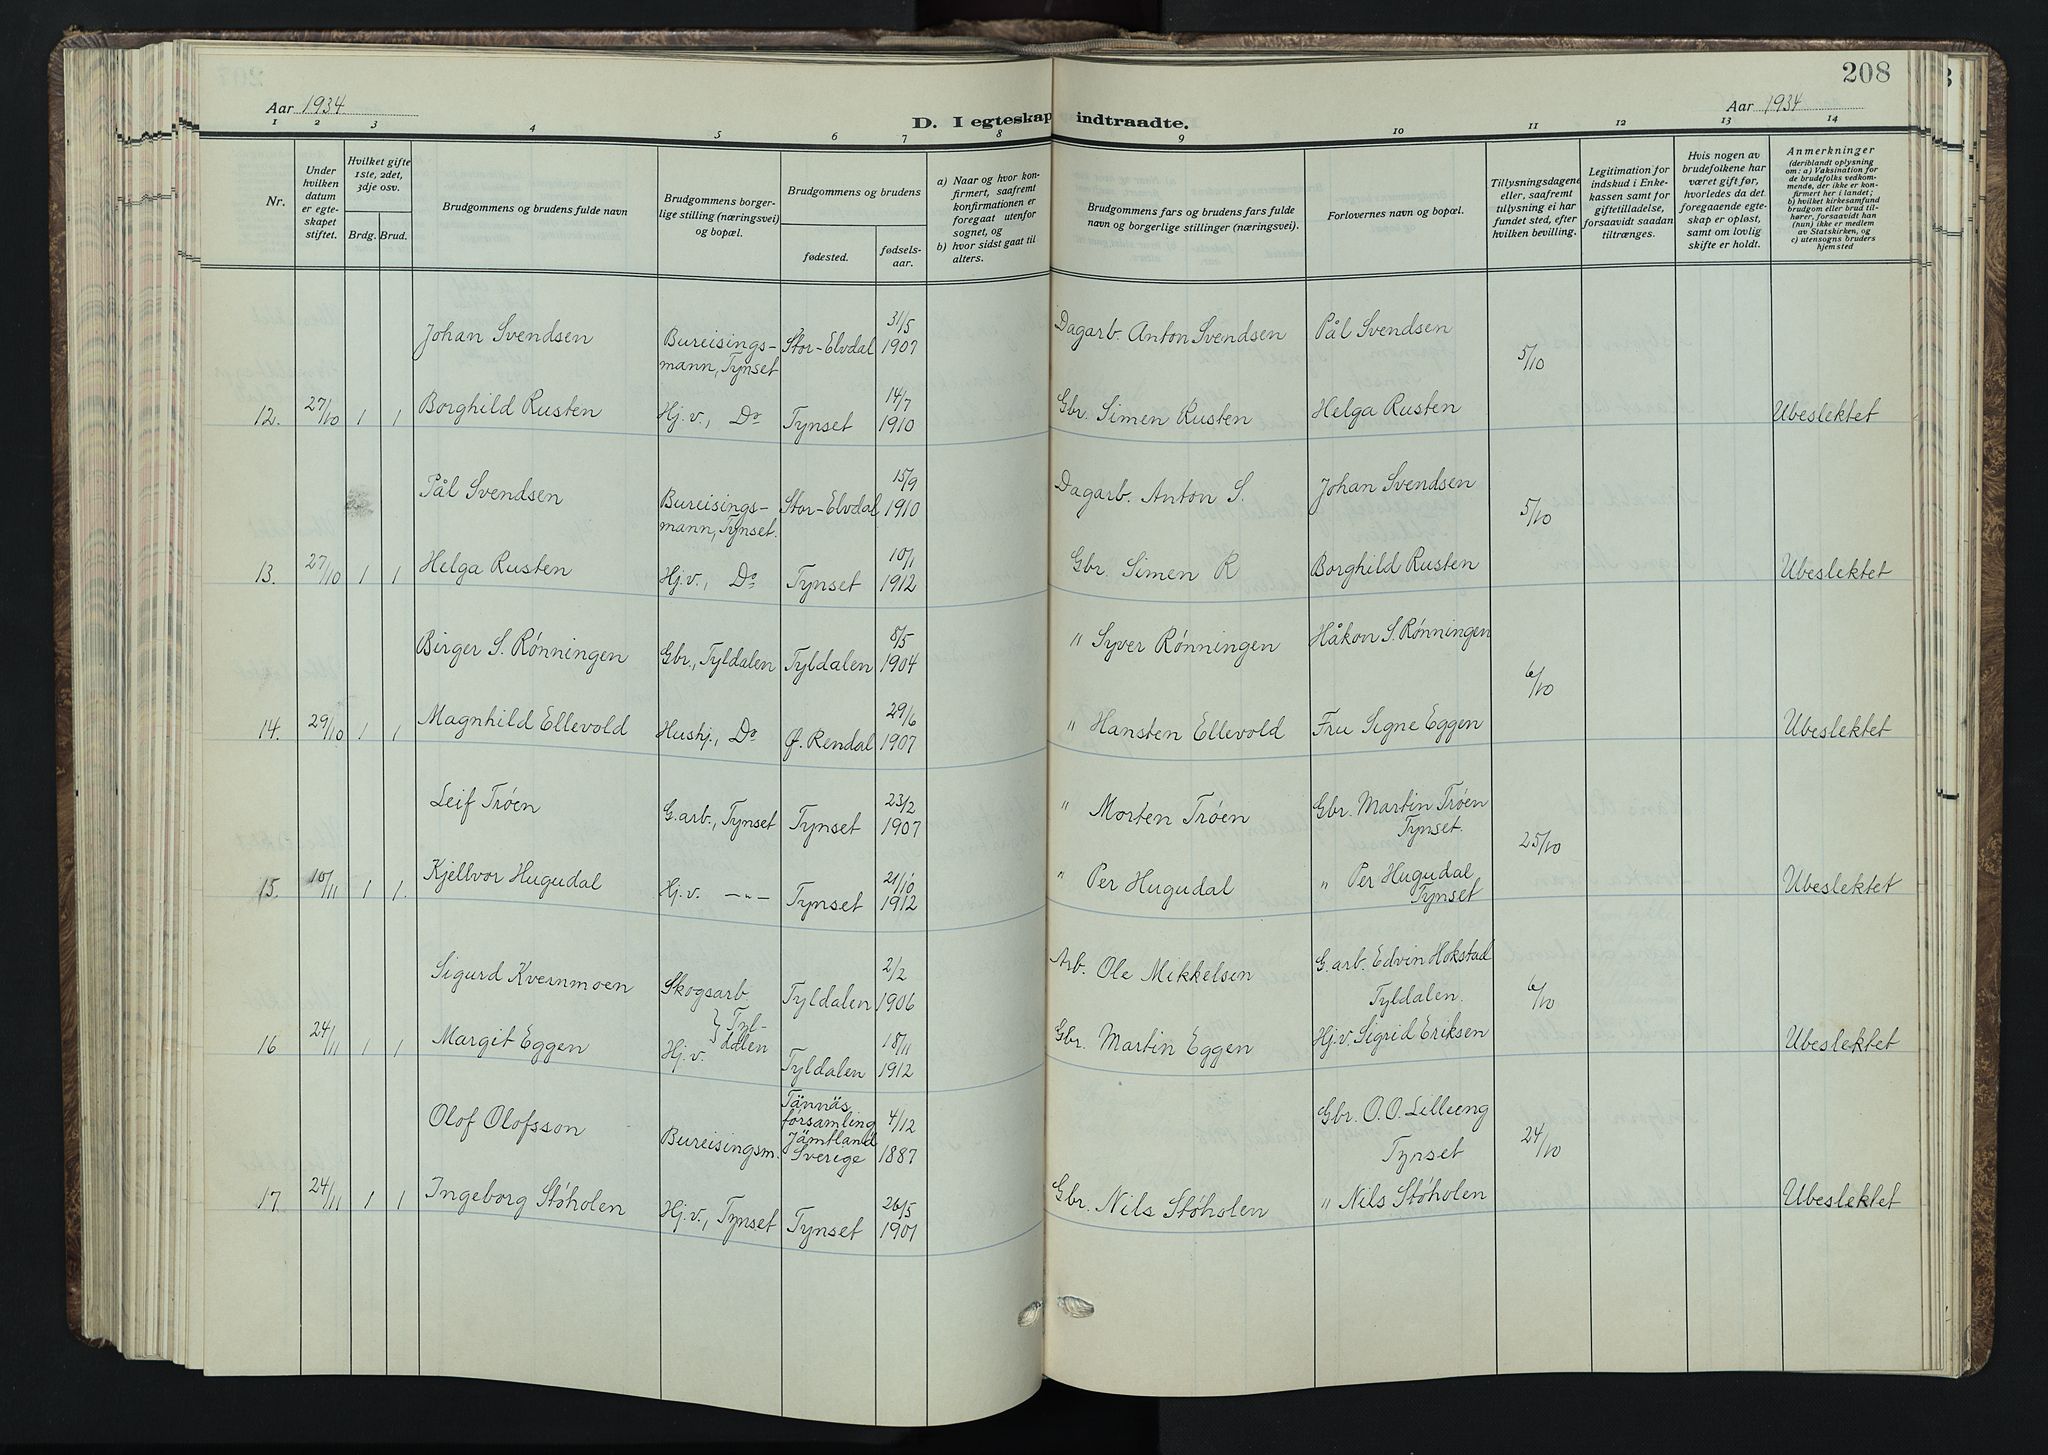 208
Aar 1934
D. I egteskap indtraadte.
Aar 1934
1 2 3 4 5 6 7 8 9 10 11 12 13 14
Nr.
Under
hvilken
datum
er egte-
skapet
stiftet.
Hvilket gifte
1ste, 2det,
3dje osv.
Brdg. Brud.
Brudgommens og brudens fulde navn
Brudgommens borger-
lige stilling (næringsvei)
og bopæl.
Brudgommens og brudens
fødested.
fødsels-
aar.
a) Naar og hvor kon-
firmert, saafremt
konfirmationen er
foregaat utenfor
sognet, og
b) hvor sidst gaat til
alters.
Brudgommens fars og brudens fars fulde
navn og borgerlige stillinger (næringsvei).
Forlovernes navn og bopæl.
Tillysningsdagene
eller, saafremt
tillysning ei har
fundet sted, efter
hvilken bevilling.
Legitimation for
indskud i Enke-
kassen samt for
giftetilladelse,
forsaavidt saadan
tiltrænges.
Hvis nogen av
brudefolkene har
været gift før,
hvorledes da det
foregaaende egte-
skap er opløst,
samt om lovlig
skifte er holdt.
Anmerkninger
(deriblandt oplysning
om: a) Vaksination for
de brudefolks vedkom-
mende, der ikke er kon-
firmert her i landet;
b) hvilket kirkesamfund
brudgom eller brud til-
hører, forsaavidt han
(hun) ikke er medlem
av Statskirken, og
c) utensogns bruders
hjemsted
Johan Svendsen Bureisings-
mann, Tynset Stor-Elvdal 31/5
1907 Dagarb. Anton Svendsen Pål Svendsen 5/10
12. 27/10 1 1 Borghild Rusten Hj.v., Do Tynset 14/7
1910 Gbr. Simen Rusten Helga Rusten Ubeslektet
Pål Svendsen Bureisings-
mann, Tynset. Stor-Elvdal 15/9
1910 Dagarb. Anton S. Johan Svendsen 5/10
13. 27/10 1 1 Helga Rusten Hj.v., Do Tynset 10/1
1912 Gbr. Simen R Borghild Rusten Ubeslektet
Birger S. Rønningen Gbr., Tyldalen Tyldalen 8/5
1904 " Syver Rønningen Håkon S. Rønningen 6/10
14. 29/10 1 1 Magnhild Ellevold Hushj., Do Ø. Rendal 29/6
1907 " Hansten Ellevold Fru Signe Eggen Ubeslektet
Leif Trøen G.arb., Tynset Tynset 23/2
1907 " Morten Trøen Gbr. Martin Trøen
Tynset. 25/10
15. 10/11 1 1. Kjellvor Hugudal Hj.v. -"- Tynset 21/10
1912 " Per Hugudal " Per Hugudal
Tynset Ubeslektet
Sigurd Kvernmoen Skogsarb. Tyldalen 2/2
1906 Arb. Ole Mikkelsen G.arb. Edvin Hokstad
Tyldalen. 6/10
16 24/11 1 1 Margit Eggen Hj.v. } Tyl-
dalen Tyldalen 18/11
1912 Gbr. Martin Eggen Hj.v. Sigrid Eriksen Ubeslektet
Olof Olofsson Bureisingsm. Tännäs
församling
Jämtland
Sverige 4/12
1887 Gbr. O.O. Lilleeng
Tynset 24/10
17. 24/11 1 1 Ingeborg Støholen Hj.v., Tynset Tynset 26/5
1901 Gbr. Nils Støholen " Nils Støholen Ubeslektet